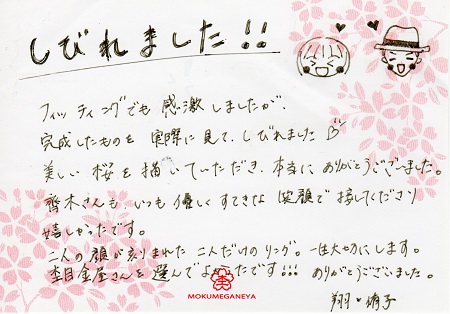 しびれました!!
フィッティングでも感激しましたが、
完成したものを実際に見て、しびれました
美しい桜を描いていただき、本当にありがとうございました。
齊木さんも いつも優しく すてきな 笑顔で接してくださり
嬉しかったです。
二人の顔が刻りまれた 二人だけのリング。一生大切にします。
杢目金屋さんを 選んでよかったです!!! ありがとうございました。
MOKUMEGANEYA
翔
子